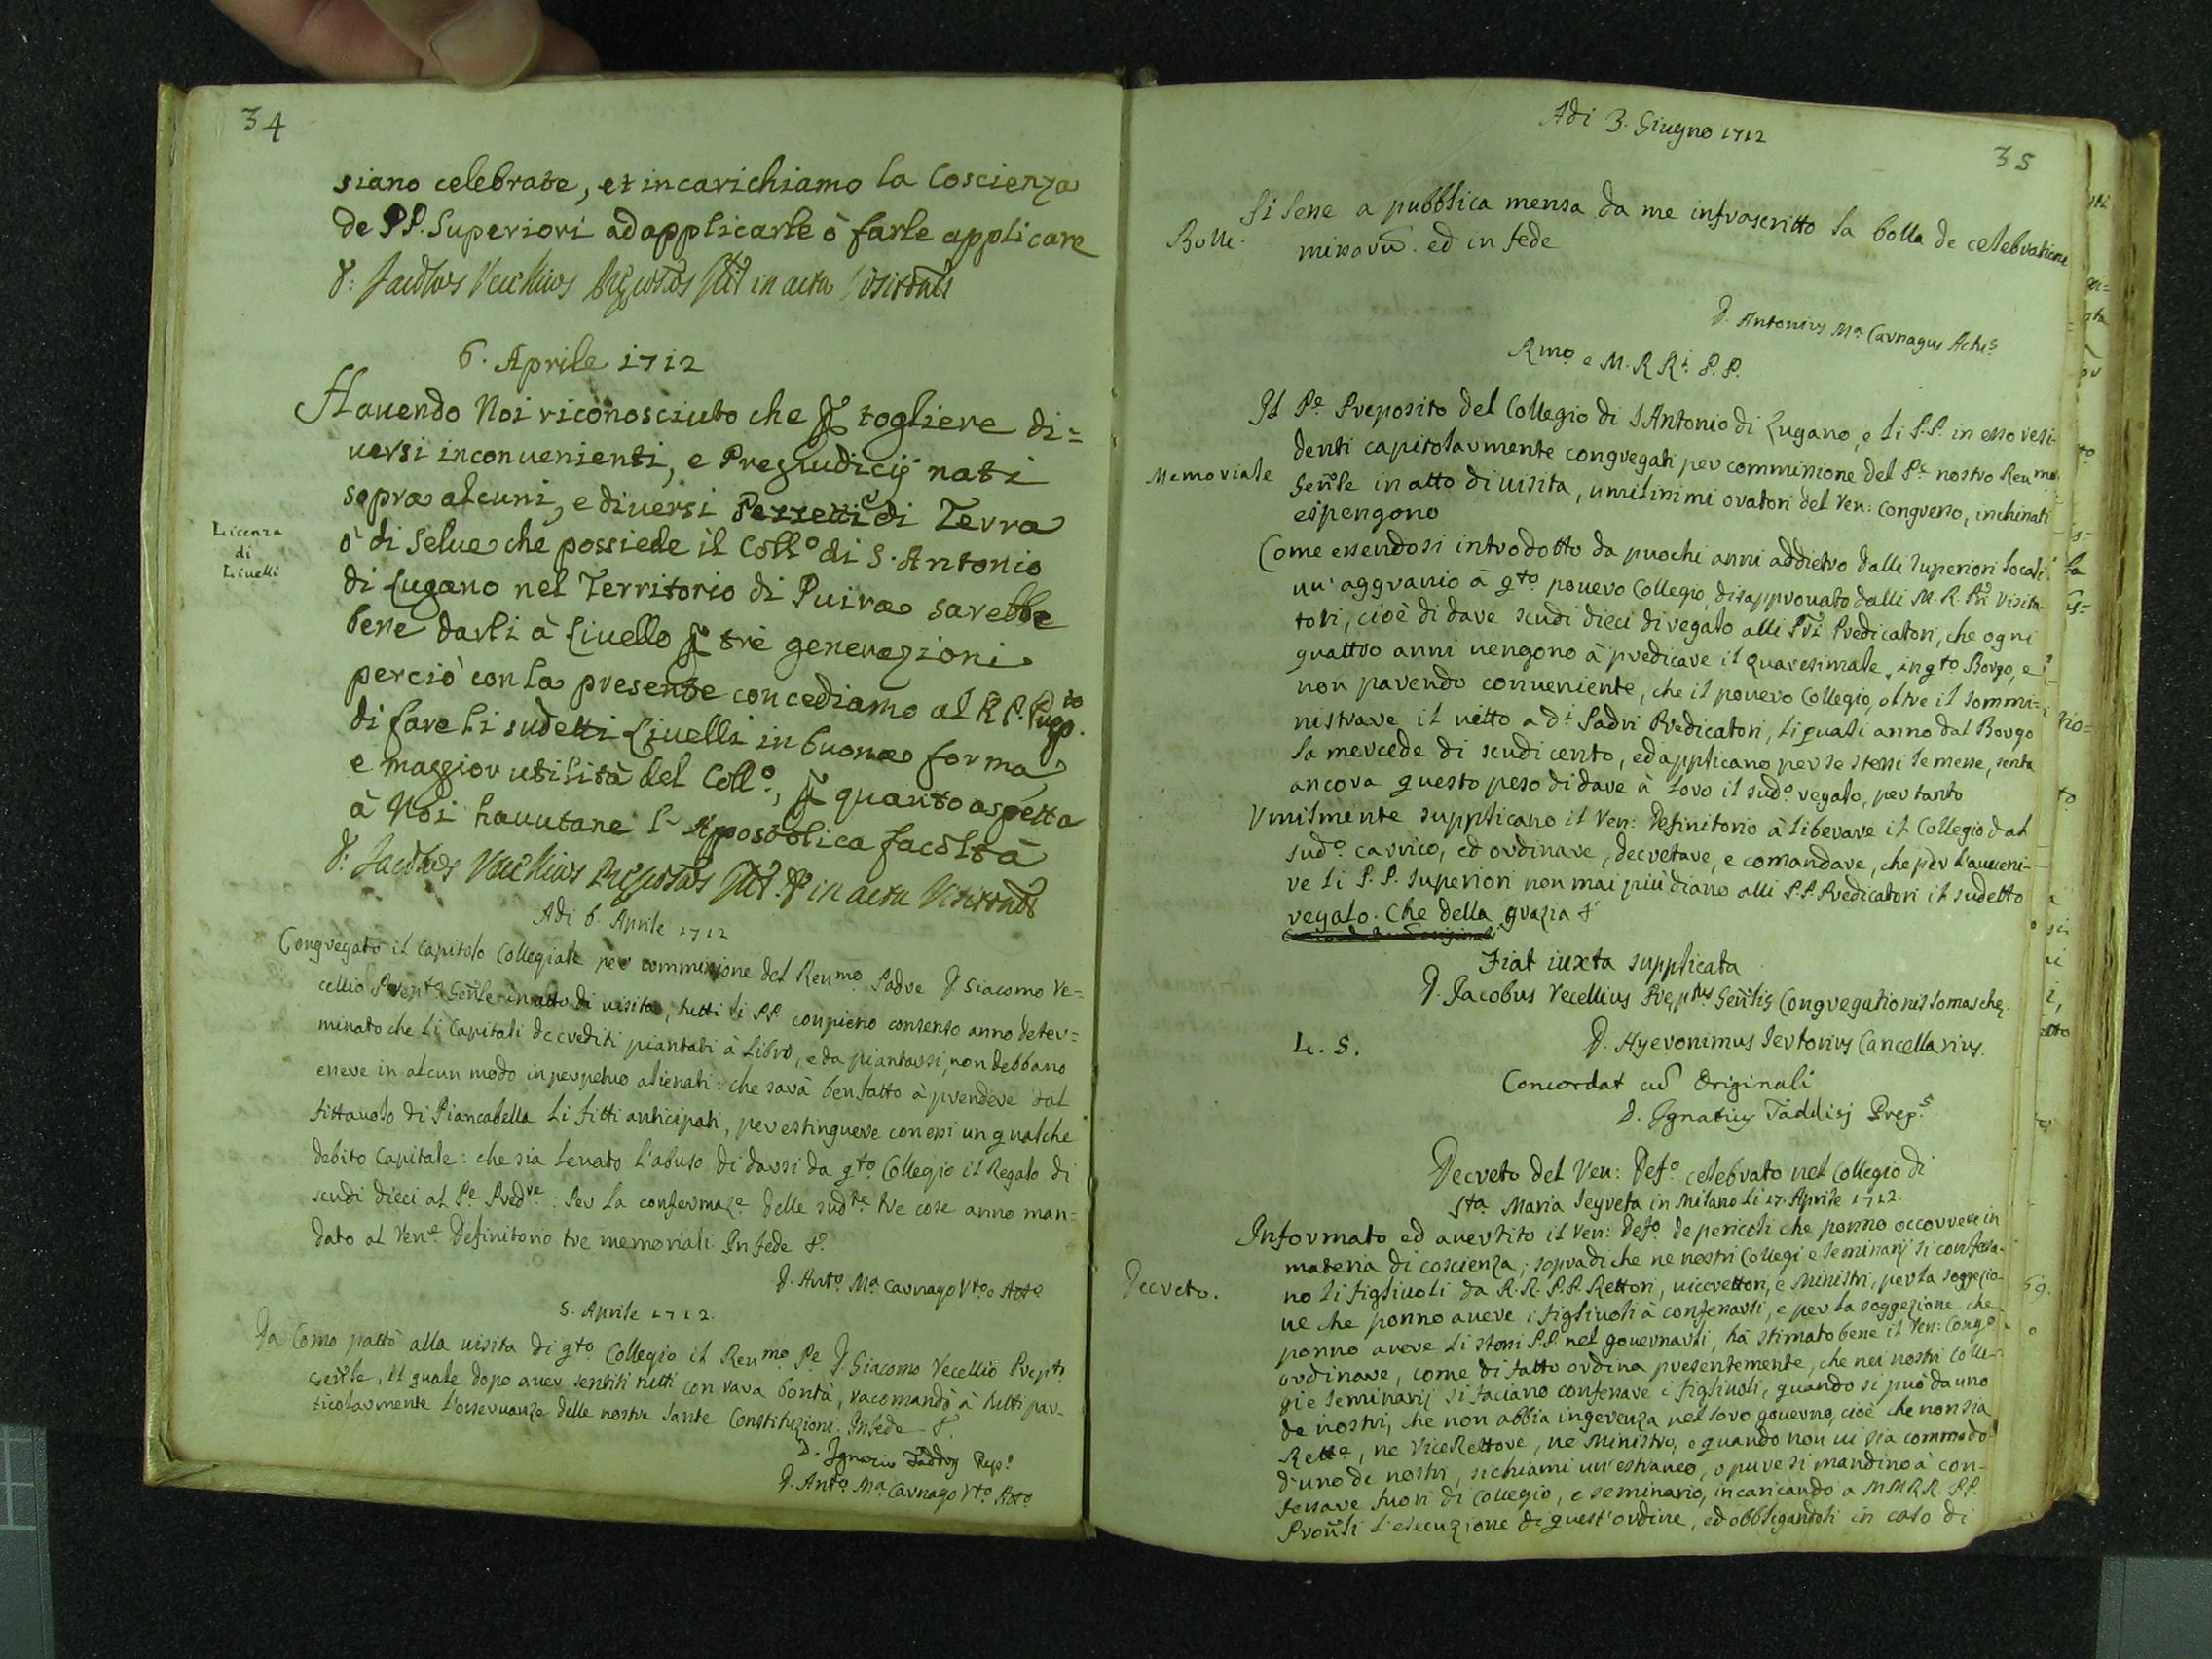 34
siano celebrate, et incarichiamo la Coscienza
de PP. Superiori ad applicarle ò farle applicare
D: Jacobus Vecellius Prępositus Glis in actu Visitationis
6. Aprile 1712
Hauendo Noi riconosciuto che ꝑ togliere di=
uersi inconuenienti, e Pregiudicij nati
sopra alcuni, e diuersi Pezzetti di Terra
Licenza
di
Liuelli
ò di Selue che possiede il Collo di S. Antonio
di Lugano nel Territorio di Puira sarebbe
bene darli à Liuello ꝑ tre generazioni
perciò con la presente concediamo al R P. Prepto
di fare li sudetti Liuelli in buona forma
e maggior utilità del Collo, ꝑ quanto aspetta
à Noi hauutane l'Appostolica facoltà
D: Jacobus Vecellius Prępositus Glis in actu Visitationis
Adi 6. Aprile 1712
Congregato il Capitolo Collegiale per commissione del Reumo Padre D. Giacomo Ve=
cellio Prepto Genle in atto di uisita, tutti li PP. con pieno consenso anno deter=
minato che li Capitali de crediti piantati à Libro, e da piantarsi, non debbano
essere in alcun modo in perpetuo alienati: che sarà ben fatto à prendere dal
fittauolo di Piancabella li fitti anticipati, per estinguere con essi un qualche
debito Capitale: che sia leuato l'abuso di darsi da qto Collegio il Regalo di
scudi dieci al Pe Predre: Per la confermaze delle sudte tre cose anno man=
dato al Vene Definitorio tre memoriali. In fede &
D. Anto Ma Carnago Vto Atto
5. Aprile 1712.
Da Como passò alla uisita di qto Collegio il Reumo Pe D. Giacomo Vecellio Prepto
Genle, il quale dopo auer sentiti tutti con rara bontà, racomandò à tutti par-
ticolarmente l'osseruanza delle nostre Sante Constituzioni. In fede - &.
D. Ignazio Taddisj Prepo
D. Anto Ma Carnago Vto Atto
Adi 3. Giugno 1712
35
Si lesse a pubblica mensa da me infrascritto la bolla de celebratione
Bolle.
missarū. ed in fede
D. Antonius Ma Carnagus Actus
Rmo e M. R Ri P. P.
Il Pe Preposito del Collegio di S Antonio di Lugano, e li P.P. in esso resi-
denti capitolarmente congregati per commissione del Pe nostro Reumo
Memoriale
Genle in atto di uisita, umilissimi oratori del Ven: Congresso, inchinati
espongono
Come essendosi introdotto da puochi anni addietro dalli Superiori locali
un' aggrauio à qto pouero Collegio, disapprouato dalli M. R. Pri Visita-
tori, cioè di dare scudi dieci di regalo alli Pri Predicatori, che ogni
quattro anni uengono à predicare il quaresimale in qto Borgo, e
non parendo conueniente, che il pouero Collegio, oltre il sommi=
nistrare il uitto a di Padri Predicatori, li quali anno dal Borgo
la mercede di scudi cento, ed applicano per se stessi le messe, senta
ancora questo peso di dare à loro il sudo regalo, per tanto
Vmilmente supplicano il Ven: Definitorio à liberare il Collegio dal
sudo carrico, ed ordinare, decretare, e comandare, che per l'aueni-
re li P. P. Superiori non mai più diano alli P.P. Predicatori il sudetto
regalo. Che della grazia &
Fiat iuxta supplicata
D. Jacobus Vecellius Preptus Genlis Congregationis Somaschę.
L. S.
D. Hyeronimus Sertorius Cancellarius.
Concordat cū Originali
D. Ignatius Taddisj Preps
Decreto del Ven: Defo celebrato nel Collegio di
Sta Maria Segreta in Milano li 17. Aprile 1712.
Informato ed auertito il Ven: Defo de pericoli che ponno occorrere in
materia di coscienza, sopra di che ne nostri Collegi e Seminarij si confessa-
Decreto.
no li figliuoli da R. R. P. P. Rettori, uicerettori, e Ministri, per la soggezio-
ne che ponno auere i figliuoli à confessarsi, e per la soggezione che
ponno auere li stessi PP. nel gouernarli, hà stimato bene il Ven: Congo
ordinare, come di fatto ordina presentemente, che nei nostri Colle-
gi e Seminarij si faciano confessare i figliuoli, quando si può da uno
de nostri, che non abbia ingerenza nel loro gouerno, cioè che non sia
Rette, ne ViceRettore, ne Ministro, e quando non ui sia commodo
d'uno de nostri, si chiami un'estraneo, o pure si mandino à con-
fessare fuori di Collegio, e seminario, incaricando a MMRR. PP.
Prouli l'esecuzione di quest'ordine, ed obbligandoli in caso di